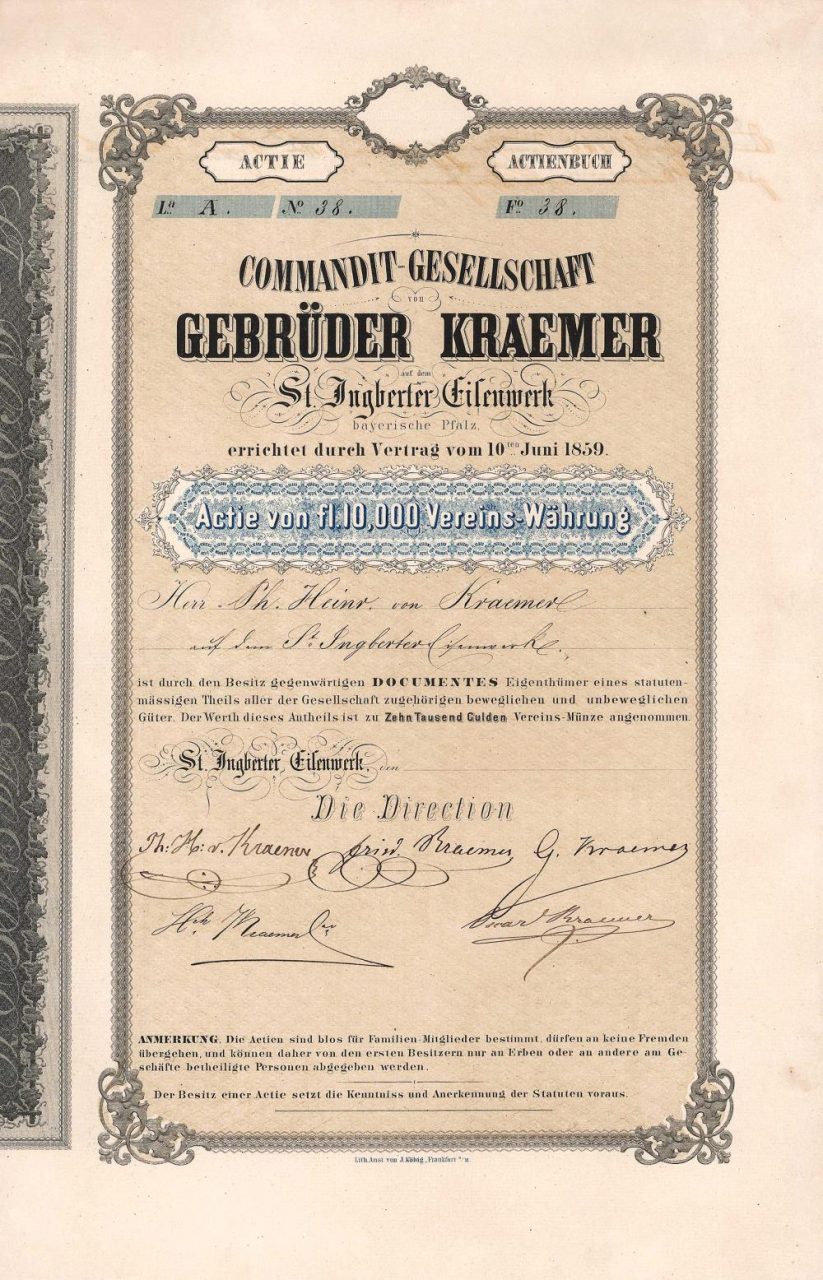 ACTIE ACTIENBUCH
La A. No 38. Fo 38.
COMMANDIT-GESELLSCHAFT
von
GEBRÜDER KRAEMER
auf dem
St. Ingberter Eisenwerk
bayerische Pfalz,
errichtet durch Vertrag vom 10ten Juni 1859.
Actie von fl. 10,000 Vereins-Währung
Herr Ph. Heinr. von Kraemer
auf dem St. Ingberter Eisenwerke.
ist durch den Besitz gegenwärtigen DOCUMENTES Eigenthümer eines statuten-
mässigen Theils aller der Gesellschaft zugehörigen beweglichen und unbeweglichen
Güter. Der Werth dieses Antheils ist zu Zehn Tausend Gulden Vereins-Münze angenommen.
St. Ingberter Eisenwerk, den
Die Direction
Ph: H: v. Kraemer fried. Kraemer G. Kraemer
Hch Kraemer Oscar Kraemer
ANMERKUNG. Die Actien sind blos für Familien-Mitglieder bestimmt, dürfen an keine Fremden
übergehen, und können daher von den ersten Besitzern nur an Erben oder an andere am Ge-
schäfte betheiligte Personen abgegeben werden.
Der Besitz einer Actie setzt die Kenntniss und Anerkennung der Statuten voraus.
Lith. Anst von J. Köbig, Frankfurt a/M.